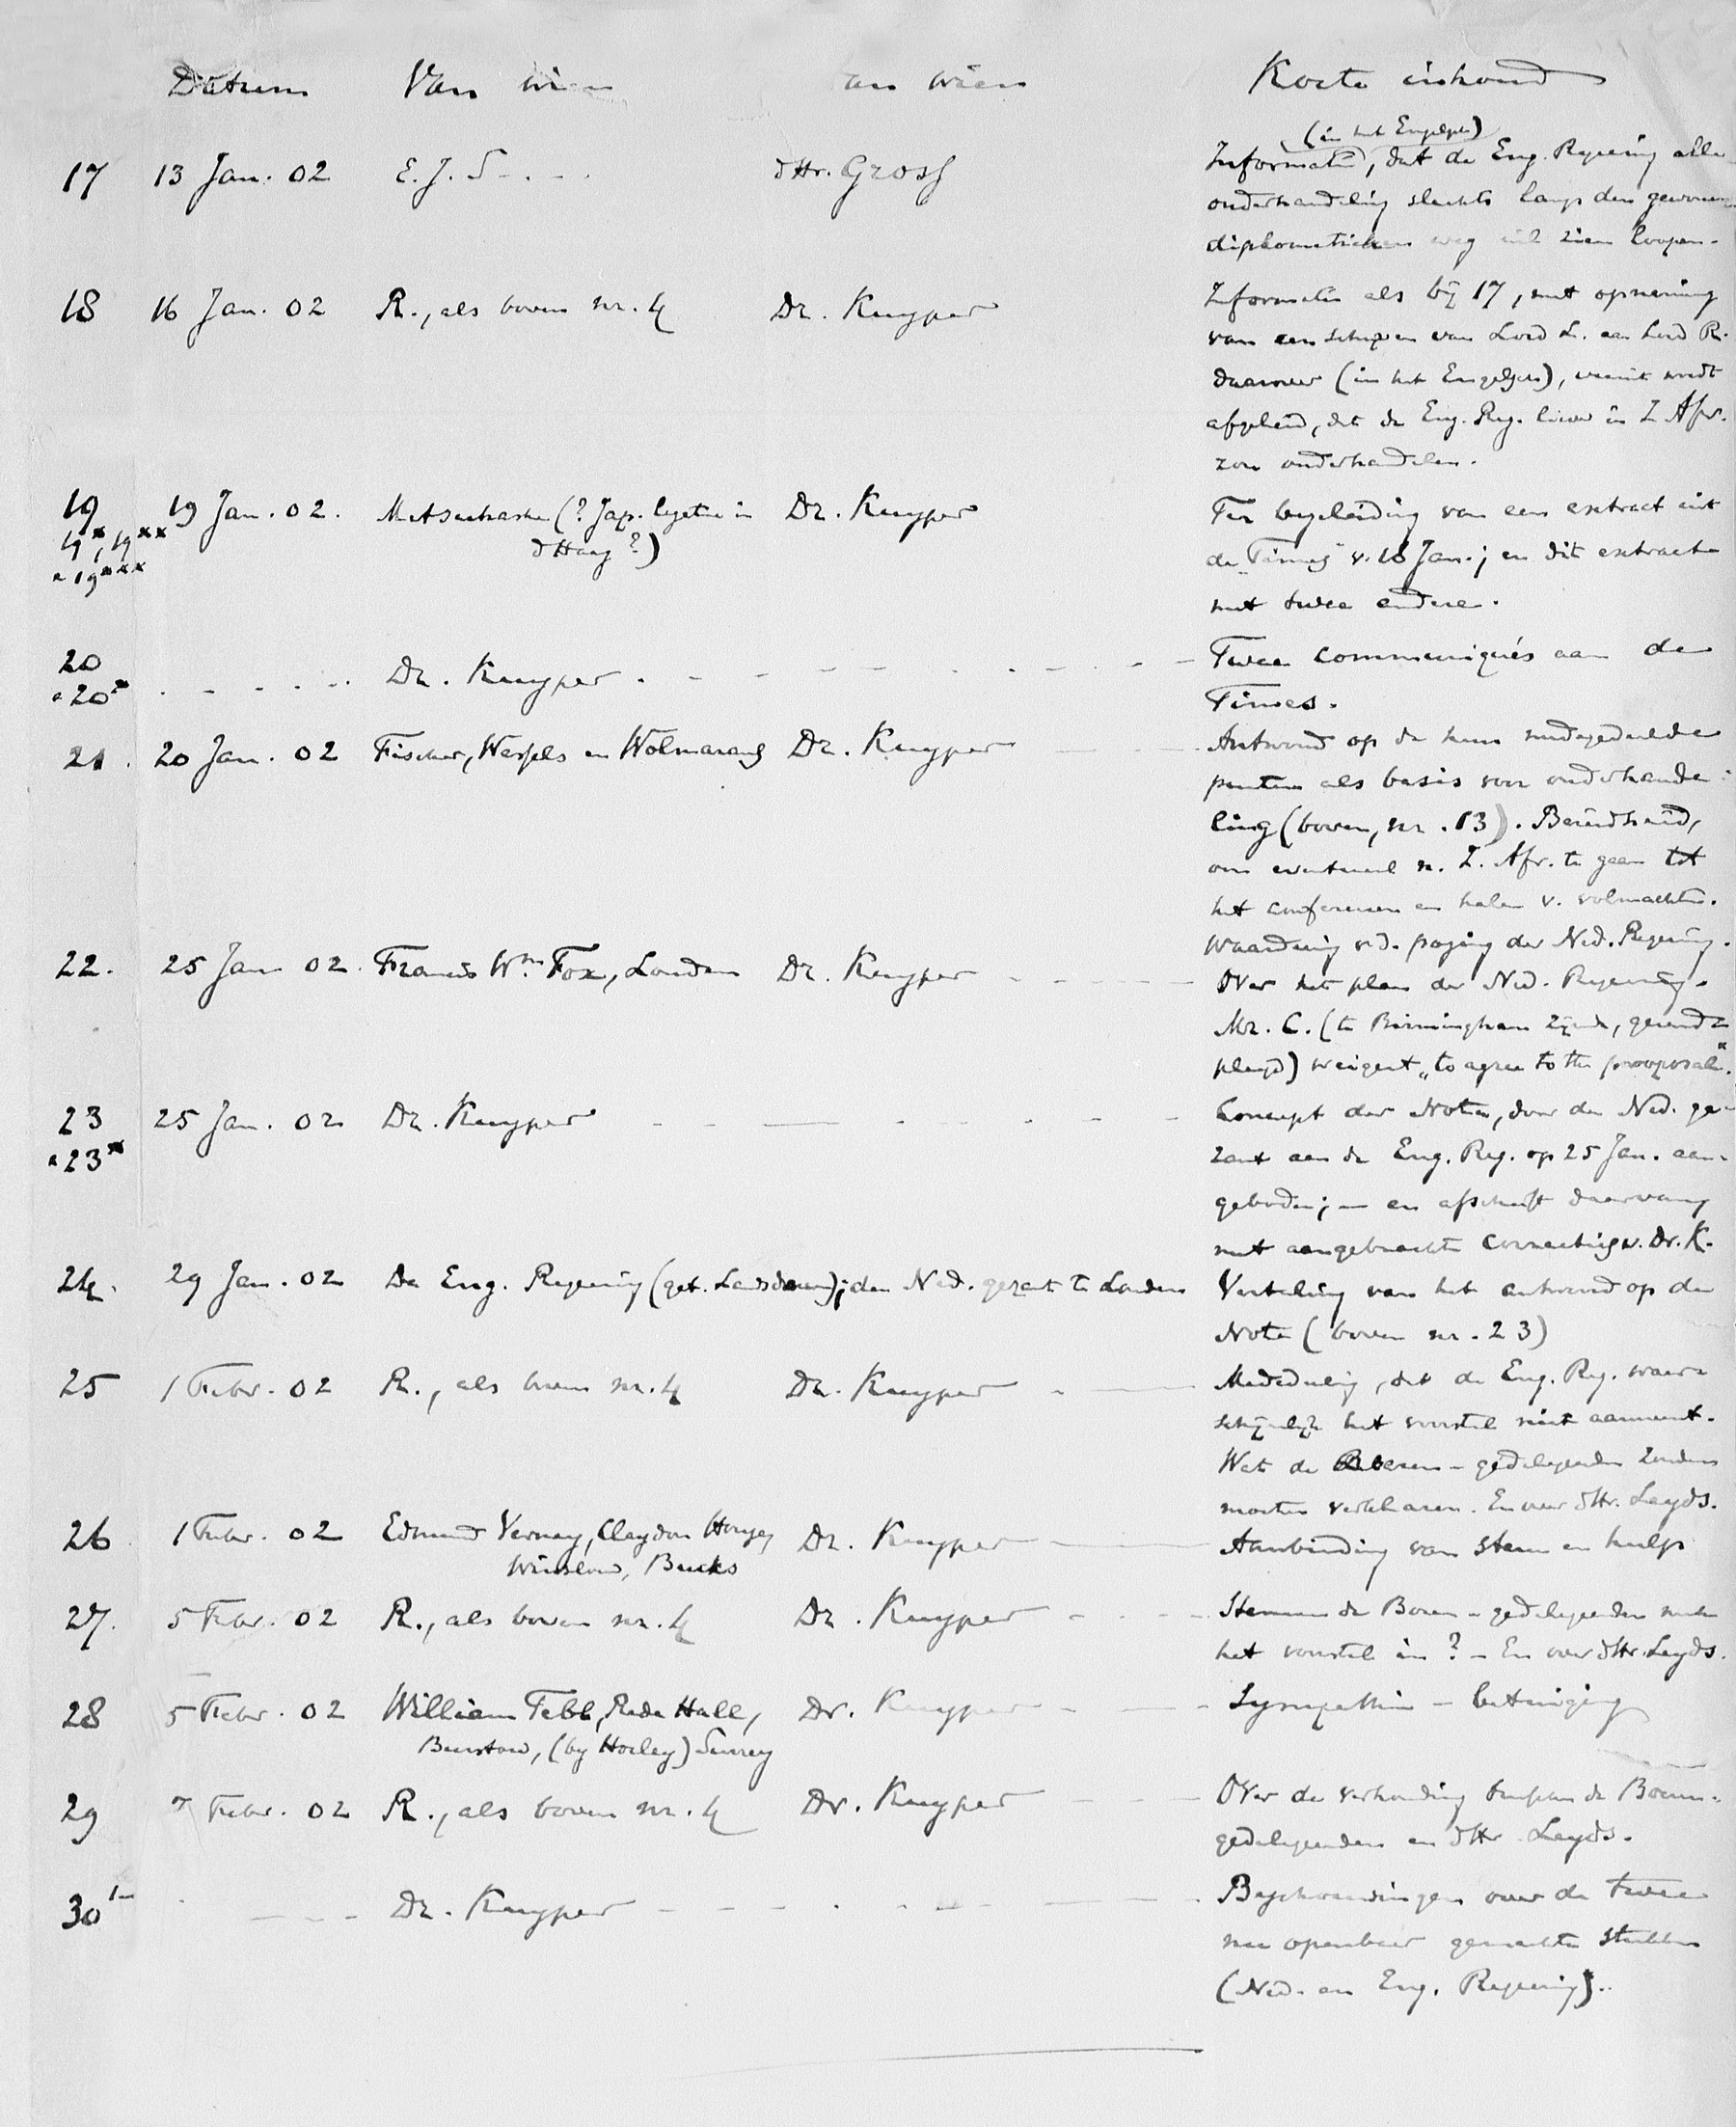 Datum Van wien aan wien Korte inhoud
(in het Engelsch)
17 13 Jan. 02 E. J. S - . - . dHr. Grosf Informatie, dat de Eng. Regeering alle
onderhandeling slechts langs den gewonen
diplomatieken weg wil zien loopen.
18 16 Jan. 02 R., als boven nr. 4 Dr. Kuyper Informatie als bij 17, met opneming
van een schrijven van Lord L. aan Lord R.
daarover (in het Engelsch), waaruit wordt
afgeleid, dat de Eng. Reg. liever in Z Afr.
zou onderhandelen.
19 19 Jan. 02. (? Jap. legatie in Dr. Kuyper Ter begeleiding van een extract uit
19*, 19** d Haag ?) de „Times" v. 18 Jan.; en dit extract
" 19*** met twee andere.
20 Dr. Kuyper Twee communiqués aan de
" 20* Times.
21. 20 Jan. 02 Fischer, Wessels en Wolmarans Dr. Kuyper Antwoord op de hun medegedeelde
punten als basis voor onderhande-
ling (boven, nr. 13). Bereidheid,
om eventueel n. Z. Afr. te gaan tot
het confereeren en halen v. volmachten.
Waardering v.d. poging der Ned. Regeering.
22. 25 Jan 02. Francis Wm. Fox, Londen Dr. Kuyper Over het plan der Ned. Regeering.
Mr. C. (te Birmingham zijnde, geraad-
pleegd) weigert „to agree to the proposals".
23 25 Jan. 02 Dr. Kuyper Concept der Nota, door den Ned. ge-
" 23* zant aan de Eng. Reg. op 25 Jan. aan-
geboden; — en afschrift daarvan,
met aangebrachte correcties v. Dr. K.
24. 29 Jan. 02 De Eng. Regeering (get. Lansdowne); den Ned. gezant te Londen Vertaling van het antwoord op de
Nota (boven nr. 23)
25 1 Febr. 02 R., als boven nr. 4 Dr. Kuyper Mededeeling, dat de Eng. Reg. waar-
schijnlijk het voorstel niet aanneemt.
Wat de Boeren-gedelegeerden zouden
moeten verklaren. En over dHr. Leyds.
26 1 Febr. 02 Edmund Verney, Claydon House, Dr. Kuyper Aanbieding van steun en hulp
Winslow, Bucks
27. 5 Febr. 02 R., als boven nr. 4 Dr. Kuyper Stemmen de Boeren-gedelegeerden met
het voorstel in ? — En over dHr. Leyds.
28 5 Febr. 02 William Tebb, Rede Hall, Dr. Kuyper Sympathie-betuiging
Burstow, (by Horley) Surrey
29 7 Febr. 02 R., als boven nr. 4 Dr. Kuyper Over de verhouding tusschen de Boeren-
gedelegeerden en dHr. Leyds.
30 Dr. Kuyper Beschouwingen over de twee
nu openbaar gemaakte stukken
(Ned. en Eng. Regeering).